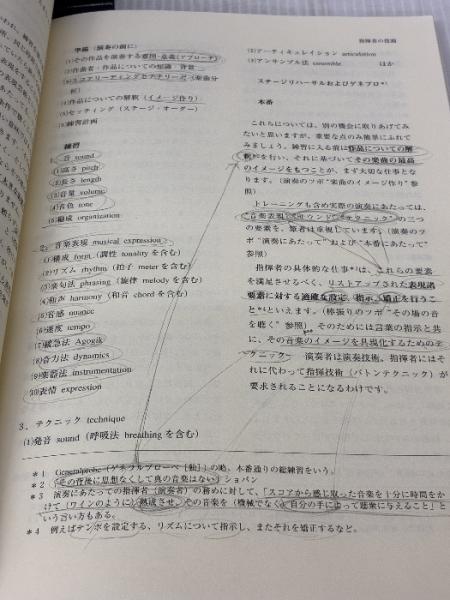 指揮者の役割
準備(演奏の前に)
(1)その作品を演奏する意図・意義(アプローチ)
(2)作曲者・作品についての知識 背景
(3)スコアリーディングとアナリーゼ(楽曲分
析)
(4)作品についての解釈(イメージ作り)
(5)セッティング(ステージ・オーダー)
(6)練習計画
練習
1. 音 sound
(1)高さ pitch
(2)長さ length
(3)音量 volume
(4)音色 tone
(5)編成 organization
2. 音楽表現 musical expression
(1)構成 form(調性 tonality を含む)
(2)リズム rhythm(拍子 meter を含む)
(3)楽句法 phrasing(旋律 melody を含む)
(4)和声 harmony(和音 chord を含む)
(5)音感 nuance
(6)速度 tempo
(7)緩急法 Agogik
(8)音力法 dynamics
(9)楽器法 instrumentation
(10)表情 expression
3. テクニック technique
(1)発音 sound(呼吸法 breathing を含む)
(2)アーティキュレイション articulation
(3)アンサンブル法 ensemble ほか
ステージリハーサルおよびゲネプロ*¹
本番
これらについては、別の機会に取りあげてみ
たいと思いますが、重要な点のみ簡単にふれて
みましょう。練習に入る前は作品についての解
釈を行い、それに基づいてその楽曲の最高
のイメージをもつことが、まず大切な仕事とな
ります。(演奏のツボ“楽曲のイメージ作り”参
照)
トレーニングも含め実際の演奏にあたっては、
“音楽表現”“サウンド”“テクニック”の三つ
の要素を、筆者は重視しています。(演奏のツ
ボ“演奏にあたって”および“本番にあたって”
参照)
指揮者の具体的な仕事*³は、これらの要素
を満足させるべく、リストアップされた表現諸
要素に対する適確な設定、指示、矯正を行うこ
と*⁴といえます。(棒振りのツボ“その場の音
を聴く”参照)そのためには言葉の指示と共
に、その音楽のイメージを具現化するためのテ
クニック――演奏者は演奏技術、指揮者にはそ
れに代わって指揮技術(バトンテクニック)が
要求されることになるわけです。
*1 Generalprobe(ゲネラルプローベ[独])の略、本番通りの総練習をいう。
*2 「その背後に思想なくして真の音楽はない」ショパン
*3 演奏にあたっての指揮者(演奏者)の務めに対して、「スコアから感じ取った音楽を十分に時間をか
けて(ワインのように)熟成させ、その音楽を(機械でなく)自分の手によって聴衆に与えること」と
いう言い方もある。
*4 例えばテンポを設定する、リズムについて指示し、またそれを矯正するなど。